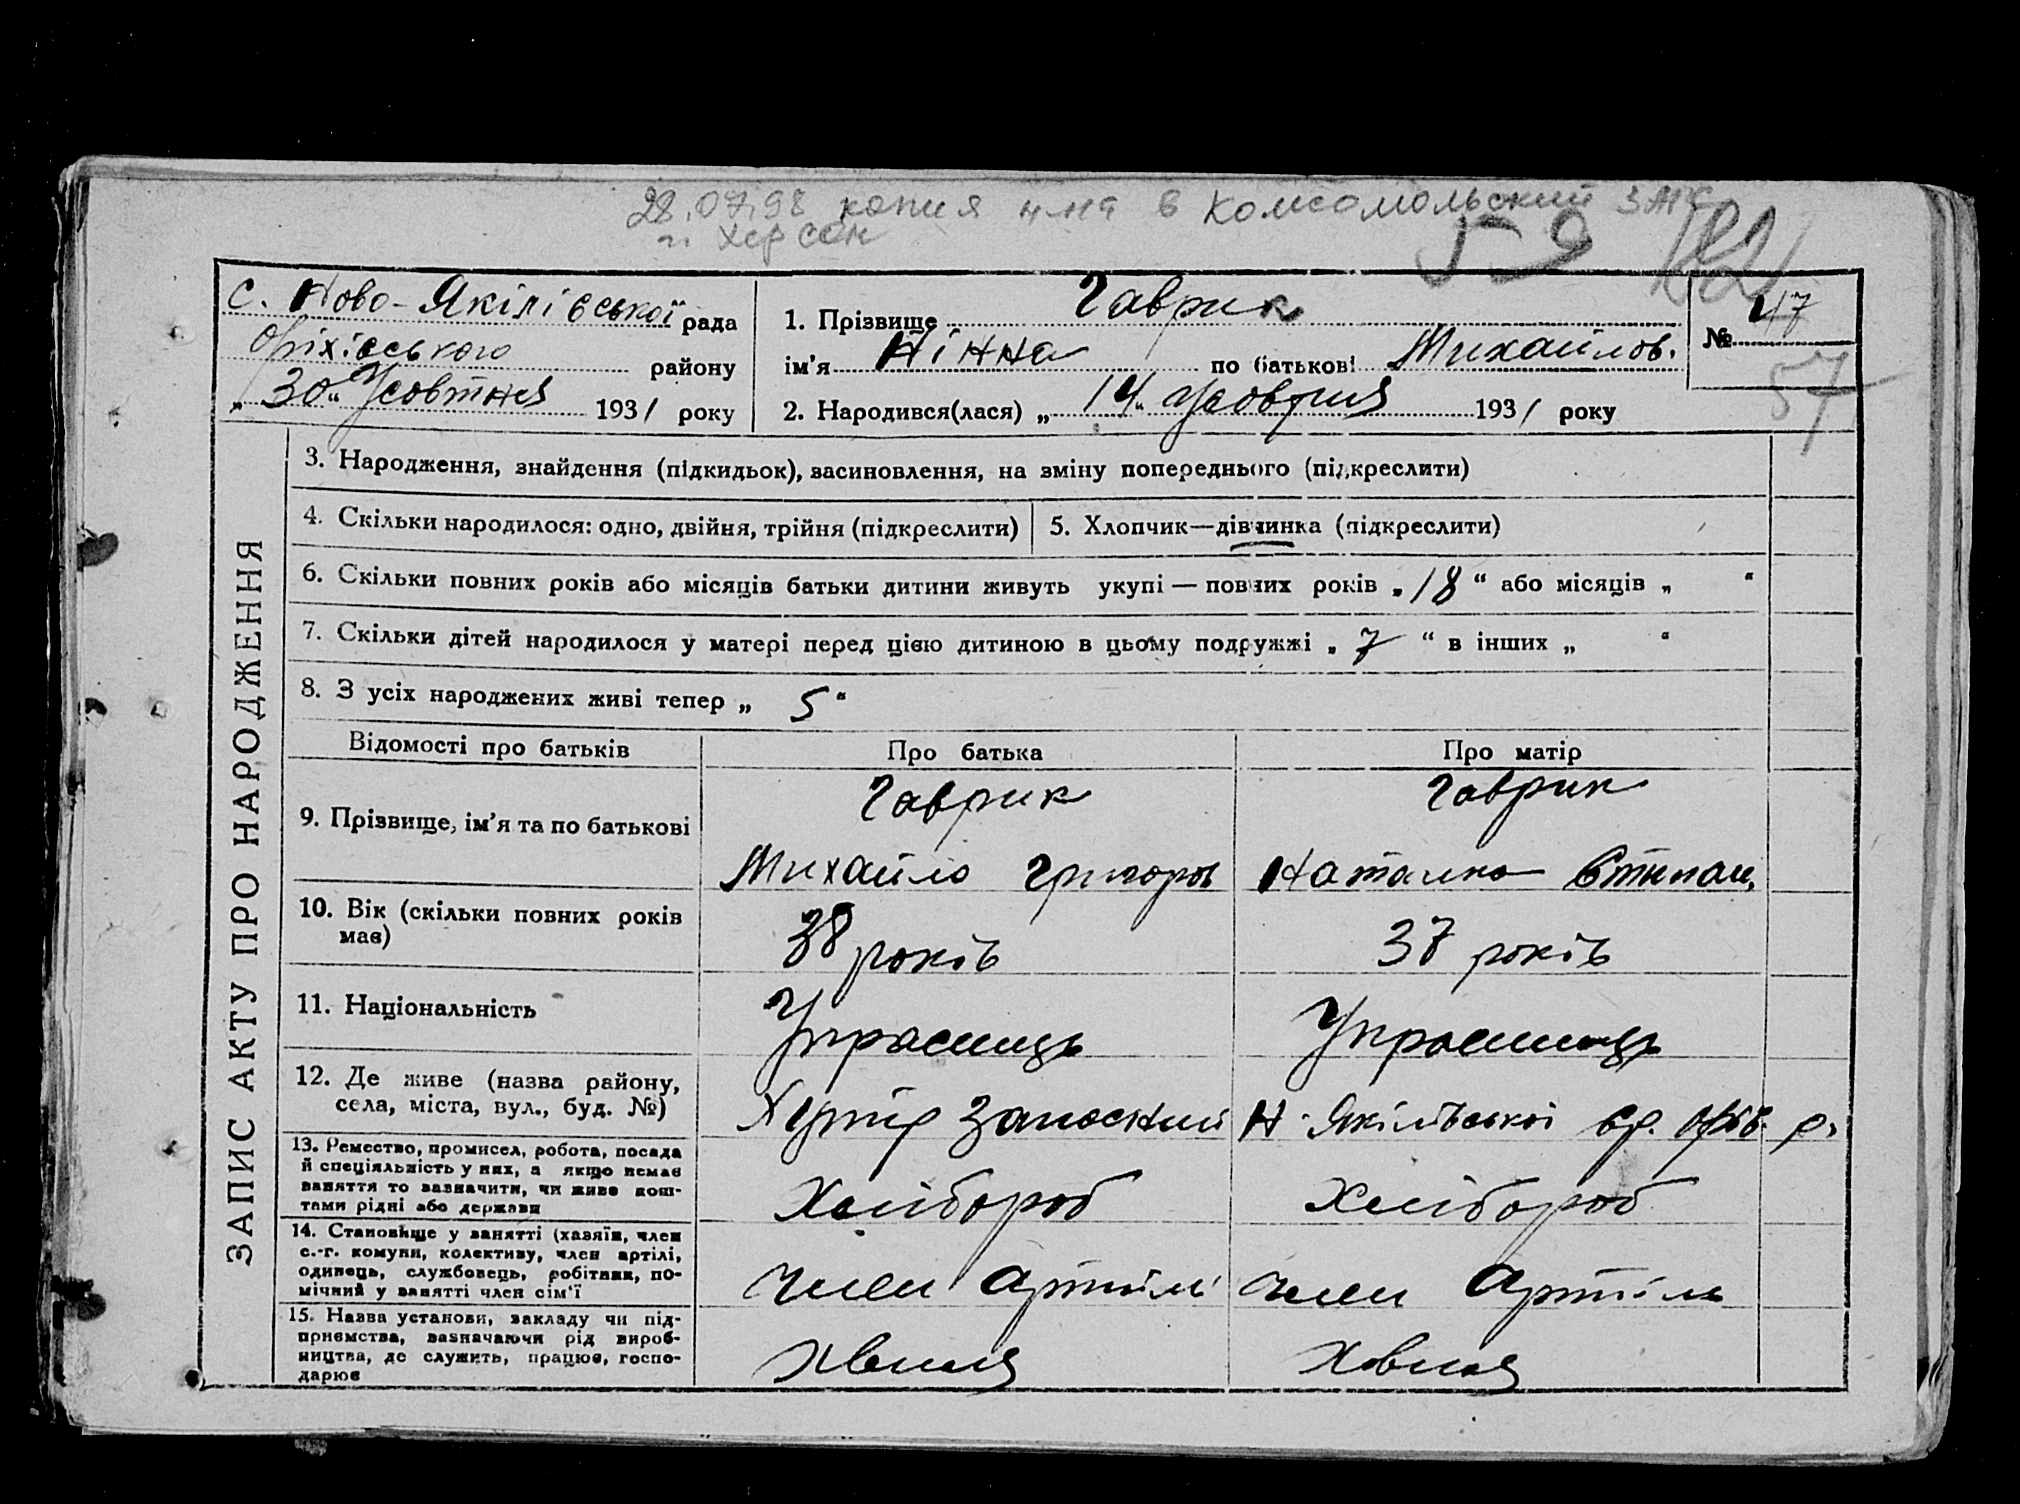 28.07.98 копия н-на в Комсомольский ЗАГС
г. Херсон
59
с. Ново-Якілівської рада
Оріхівського району
„ 30 “ Жовтня 1931 року
1. Прізвище Гаврик
ім’я Нінна по батькові Михайлов.
2. Народився(лася) „ 14 “ Жовтня 1931 року
№ 47
57
ЗАПИС АКТУ ПРО НАРОДЖЕННЯ
3. Народження, знайдення (підкидьок), засиновлення, на зміну попереднього (підкреслити)
4. Скільки народилося: одно, двійня, трійня (підкреслити)
5. Хлопчик—дівчинка (підкреслити)
6. Скільки повних років або місяців батьки дитини живуть укупі — повних років „ 18 “ або місяців „ “
7. Скільки дітей народилося у матері перед цією дитиною в цьому подружжі „ 7 “ в інших „ “
8. З усіх народжених живі тепер „ 5 “
Відомості про батьків Про батька Про матір
9. Прізвище, ім’я та по батькові
Гаврик
Михайло Григоров
Гаврик
Наталка Степан.
10. Вік (скільки повних років
має)
38 років
37 років
11. Національність
Українець
Українець
12. Де живе (назва району,
села, міста, вул., буд. №)
Хутір Н-Якілівської с.р. Оріхів. р.
13. Ремество, промисел, робота, посада
й спеціяльність у них, а якщо немає
заняття то зазначити, чи живе кош-
тами рідні або держави
Хлібороб
Хлібороб
14. Становище у занятті (хазяїн, член
с.-г. комуни, колективу, член артілі,
одинець, службовець, робітник, по-
мічний у занятті член сім’ї
член Артіли
член Артіли
15. Назва установи, закладу чи під-
приємства, зазначаючи рід вироб-
ництва, де служить, працює, госпо-
дарює
Хвиля
Хвиля